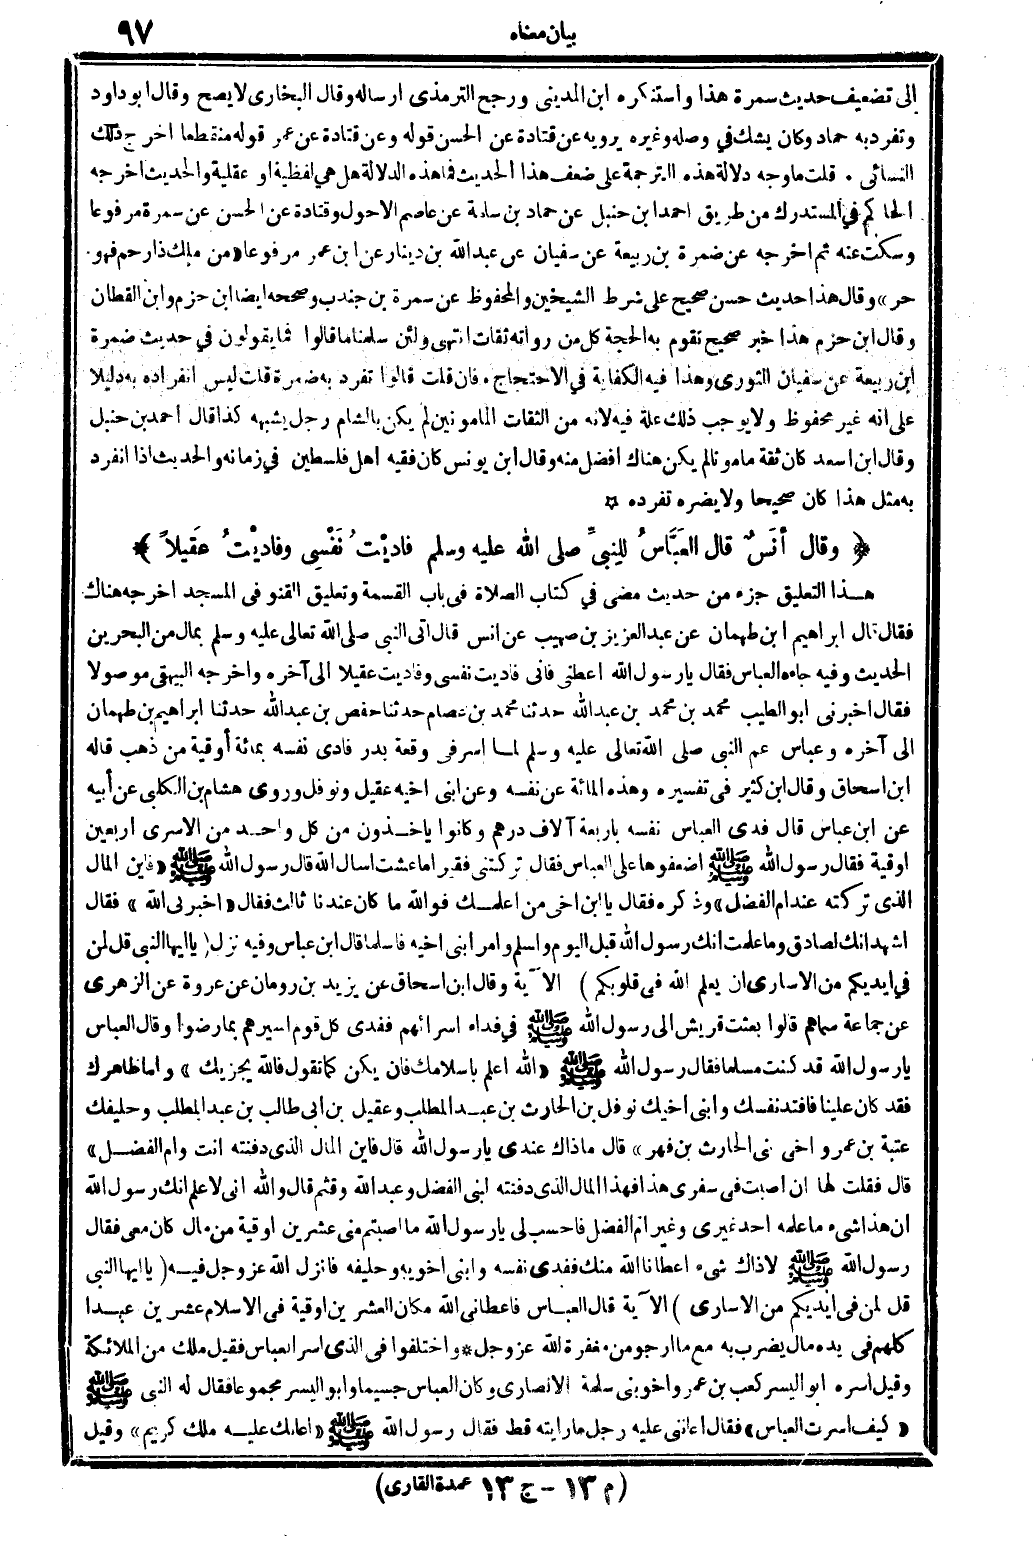 ٩٧
بيان معناه
إلى تضعيف حديث سمرة هذا واستنكره ابن المديني ورجح الترمذي ارساله وقال البخارى لا يصح وقال ابو داود
وتفرد به حماد وكان يشك في وصله وغيره يرويه عن قتادة عن الحسن قوله وعن قتادة عن عمر قوله منقطعا اخرج ذلك
النسائى . قلت ما وجه دلالة هذه الترجمة على ضعف هذا الحديث فما هذه الدلالة هل هي لفظية او عقلية والحديث اخرجه
الحاكم في المستدرك من طريق احمد ابن حنبل عن حماد بن سلمة عن عاصم الاحول وقتادة عن الحسن عن سمرة مرفوعا
وسكت عنه ثم اخرجه عن ضمرة بن ربيعة عن سفيان عن عبدالله بن دينار عن ابن عمر مرفوعا «من ملك ذا رحم فهو
حر» وقال هذا حديث حسن صحيح على شرط الشيخين والمحفوظ عن سمرة بن جندب وصححه ايضا ابن حزم وابن القطان
وقال ابن حزم هذا خبر صحيح تقوم به الحجة كل من رواته ثقات انتهى ولئن سلمنا ما قالوا فما يقولون في حديث ضمرة
ابن ربيعة عن سفيان الثورى وهذا فيه الكفاية في الاحتجاج . فان قلت قالوا تفرد به ضمرة قلت ليس انفراده به دليلا
على انه غير محفوظ ولا يوجب ذلك علة فيه لانه من الثقات المأمونين لم يكن بالشام رجل يشبهه كذا قال احمد بن حنبل
وقال ابن اسعد كان ثقة مامونا لم يكن هناك افضل منه وقال ابن يونس كان فقيه اهل فلسطين في زمانه والحديث اذا انفرد
به مثل هذا كان صحيحا ولا يضره تفرده ¤
﴿ وقال أنَسٌ قال العَبَّاسُ لِلنبيِّ صلى الله عليه وسلم فاديْتُ نَفْسِى وفاديْتُ عَقيلاً ﴾
هـذا التعليق جزء من حديث مضى في كتاب الصلاة فى باب القسمة وتعليق القنو فى المسجد اخرجه هناك
فقال قال ابراهيم ابن طهمان عن عبد العزيز بن صهيب عن انس قال اتى النبى صلى الله تعالى عليه وسلم بمال من البحرين
الحديث وفيه جاءه العباس فقال يا رسول الله اعطنى فانى فاديت نفسى وفاديت عقيلا الى آخره واخرجه البيهقى موصولا
فقال اخبرنى ابو الطيب محمد بن محمد بن عبدالله حدثنا محمد بن عصام حدثنا حفص بن عبدالله حدثنا ابراهيم بن طهمان
الى آخره وعباس عم النبى صلى الله تعالى عليه وسلم لمـا اسر فى وقعة بدر فادى نفسه بمائة أوقية من ذهب قاله
ابن اسحاق وقال ابن كثير فى تفسيره وهذه المائة عن نفسه وعن ابنى اخيه عقيل ونوفل وروى هشام بن الكلبى عن أبيه
عن ابن عباس قال فدى العباس نفسه باربعة آلاف درهم وكانوا ياخـذون من كل واحـد من الاسرى اربعين
اوقية فقال رسول الله ﷺ اضعفوها على العباس فقال تركتنى فقيرا ما عشت اسال الله قال رسول الله ﷺ «فاين المال
الذى تركته عند ام الفضل» وذكره فقال يا ابن اخى من اعلمـك فوالله ما كان عندنا ثالث فقال «اخبرنى الله» فقال
اشهد انك لصادق وما علمت انك رسول الله قبل اليوم واسلم وامر ابنى اخيه فاسلما قال ابن عباس وفيه نزل (يا ايها النبى قل لمن
في ايديكم من الاسارى ان يعلم الله فى قلوبكم) الآية وقال ابن اسحاق عن يزيد بن رومان عن عروة عن الزهرى
عن جماعة سماهم قالوا بعثت قريش الى رسول الله ﷺ في فداء اسرائهم ففدى كل قوم اسيرهم بما رضوا وقال العباس
يا رسول الله قد كنت مسلما فقال رسول الله ﷺ «الله اعلم باسلامك فان يكن كما تقول فالله يجزيك» واما ظاهرك
فقد كان علينا فافتد نفسك وابنى اخيك نوفل بن الحارث بن عبـد المطلب وعقيل بن ابى طالب بن عبد المطلب وحليفك
عتبة بن عمرو اخى نى الحارث بن فهر» قال ماذاك عندى يا رسول الله قال فاين المال الذى دفنته انت وام الفضـل»
قال فقلت لها ان اصبت فى سفرى هذا فهذا المال الذى دفنته ابنى الفضل وعبد الله وقثم قال والله انى لاعلم انك رسول الله
ان هذا شىء ما علمه احد غيرى وغير ام الفضل فاحسب لى يا رسول الله ما اصبتم منى عشرين اوقية من مال كان معى فقال
رسول الله ﷺ لا ذاك شىء اعطانا الله منك ففدى نفسه وابنى اخويه وحليفه فانزل الله عز وجل فيـه (يا ايها النبى
قل لمن فى ايديكم من الاسارى) الآية قال العبـاس فاعطانى الله مكان العشرين اوقية فى الاسلام عشرين عبـدا
كلهم فى يده مال يضرب به مع ما ارجو من مغفرة الله عز وجل * واختلفوا فى الذى اسر العباس فقيل ملك من الملائكة
وقيل اسره ابو اليسر كعب بن عمرو اخو بنى سلمة الانصارى وكان العباس جسيما وابو اليسر مجموعا فقال له النبى ﷺ
«كيف اسرت العباس» فقال اعاننى عليه رجل ما رايته قط فقال رسول الله ﷺ «اعانك عليـه ملك كريم» وقيل
(م ١٣ - ج ١٣ عمدة القارى)